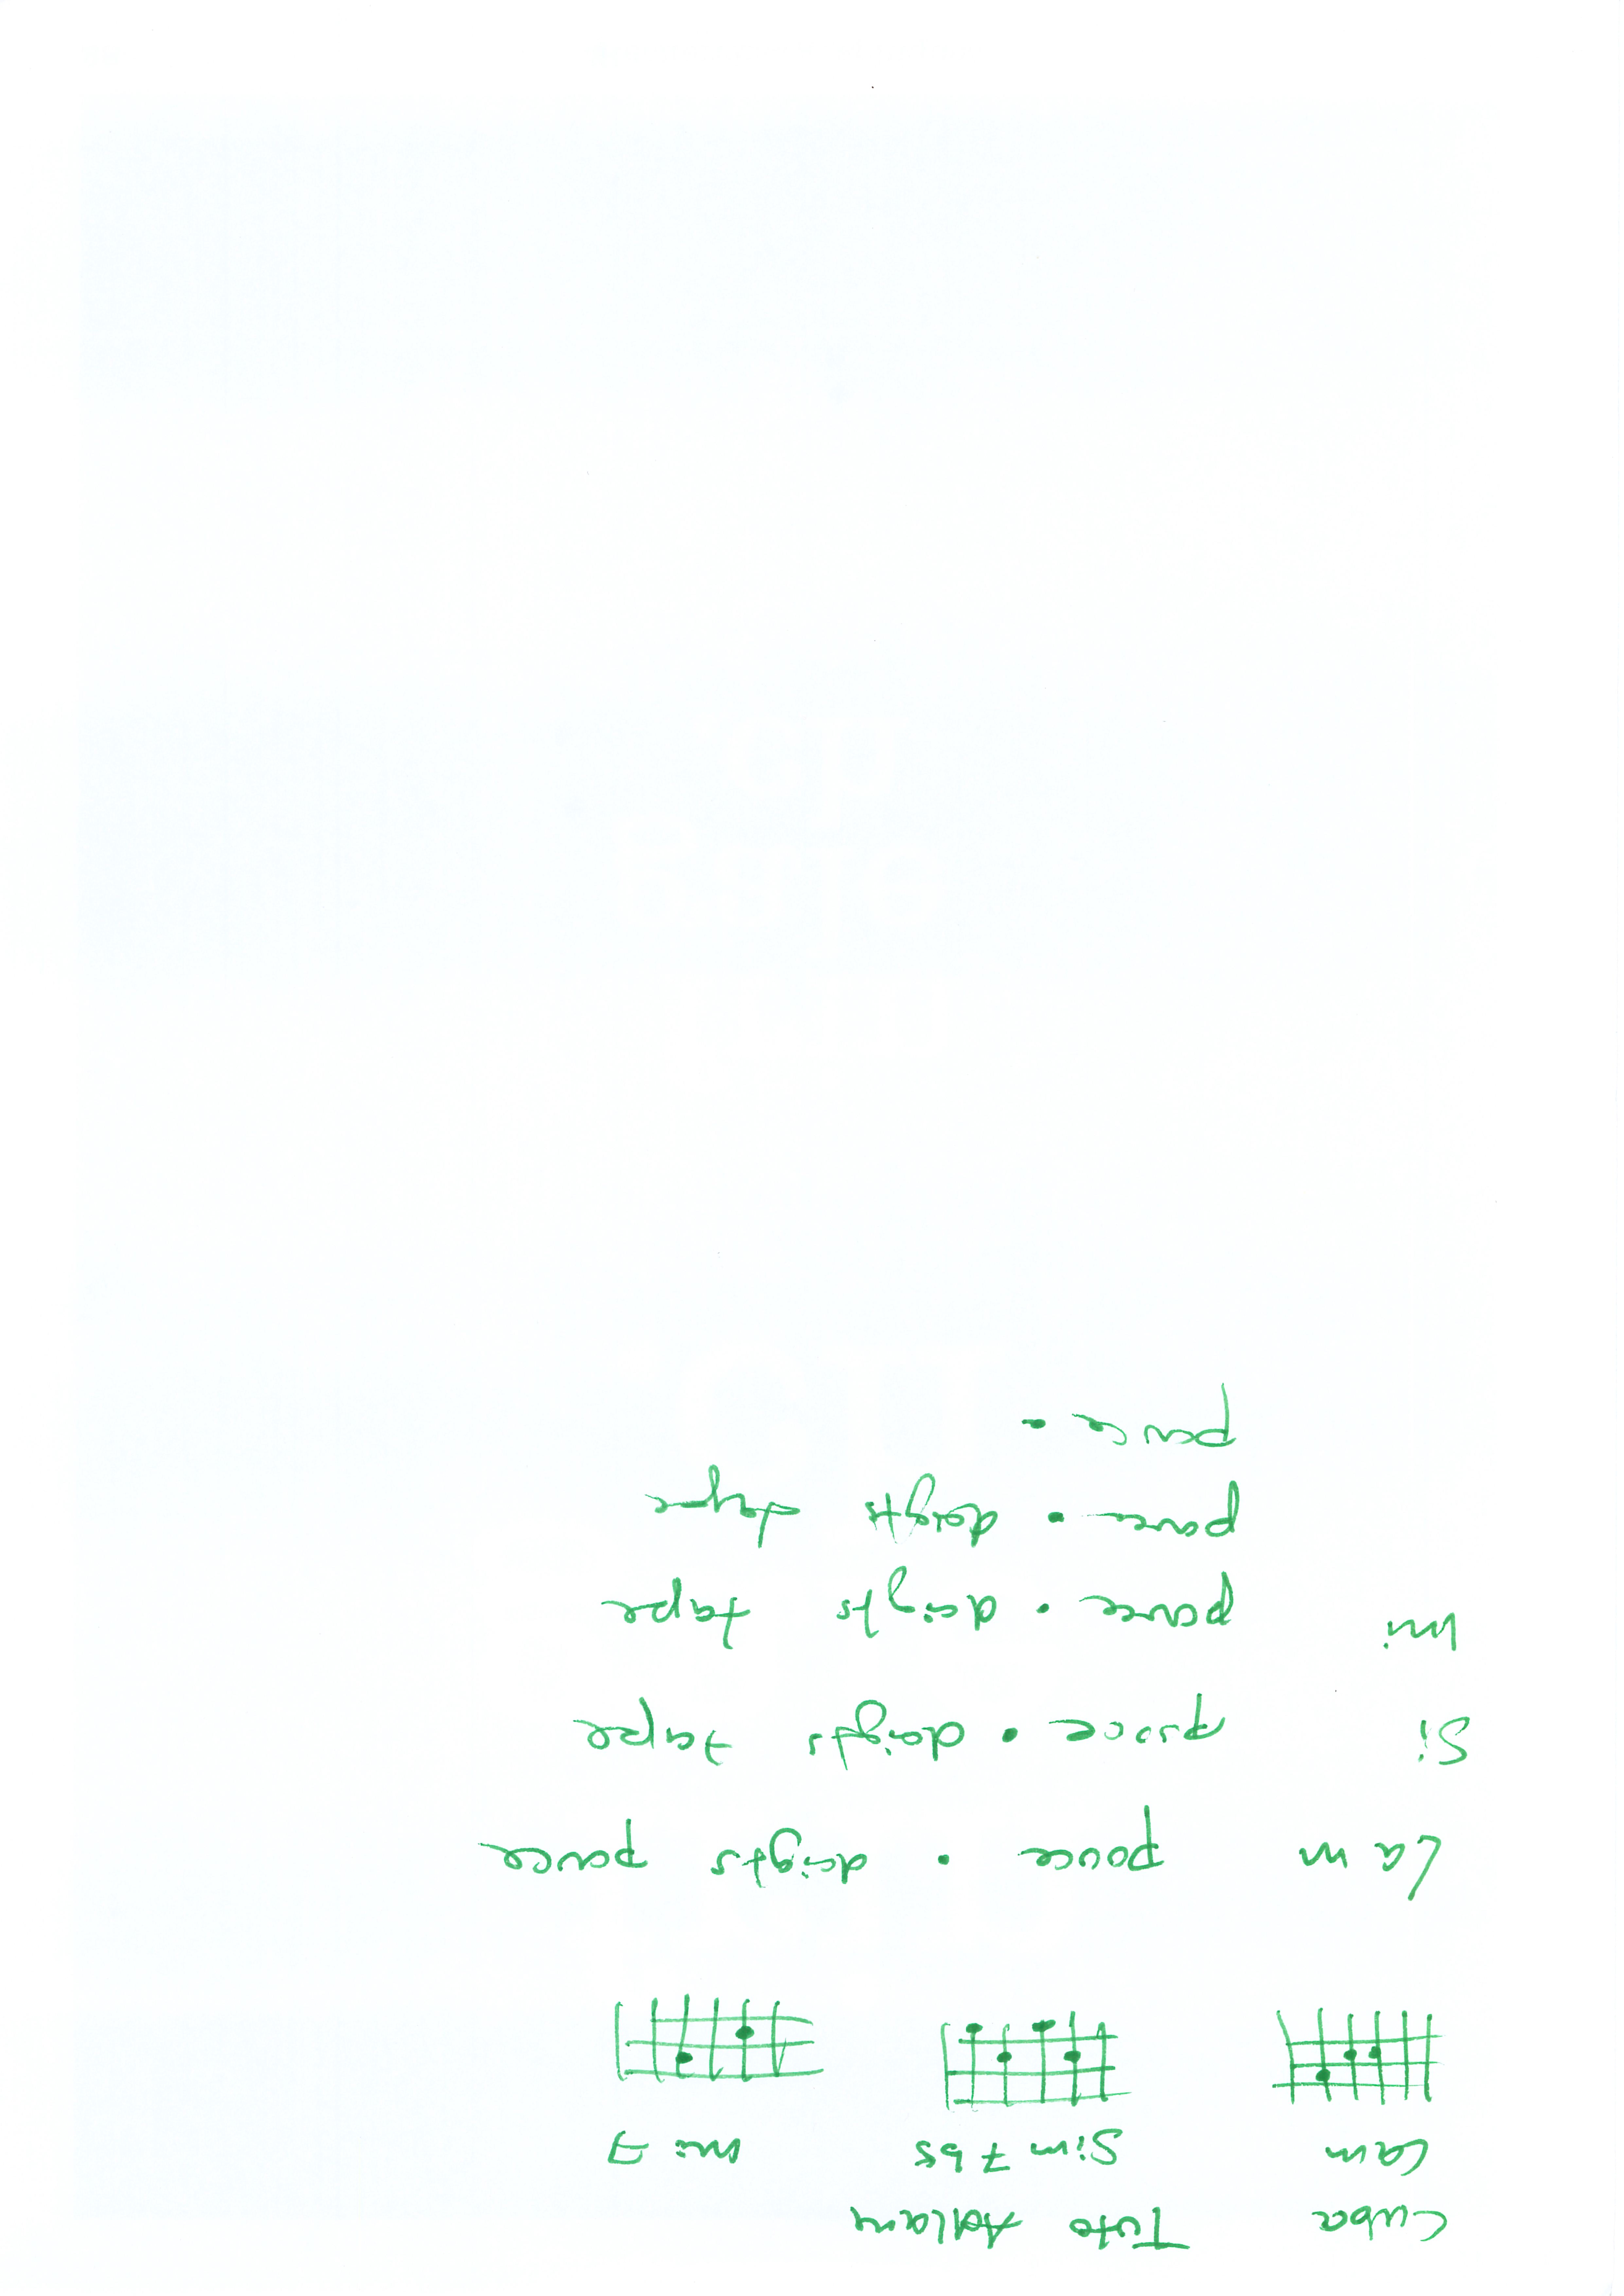 Cuba Tuto
Lam Sim 7 b5 Mi 7
La m pouce • doigts pouce
Si pouce • doigts taper
Mi pouce • doigts taper
pouce • doigts taper
pouce •